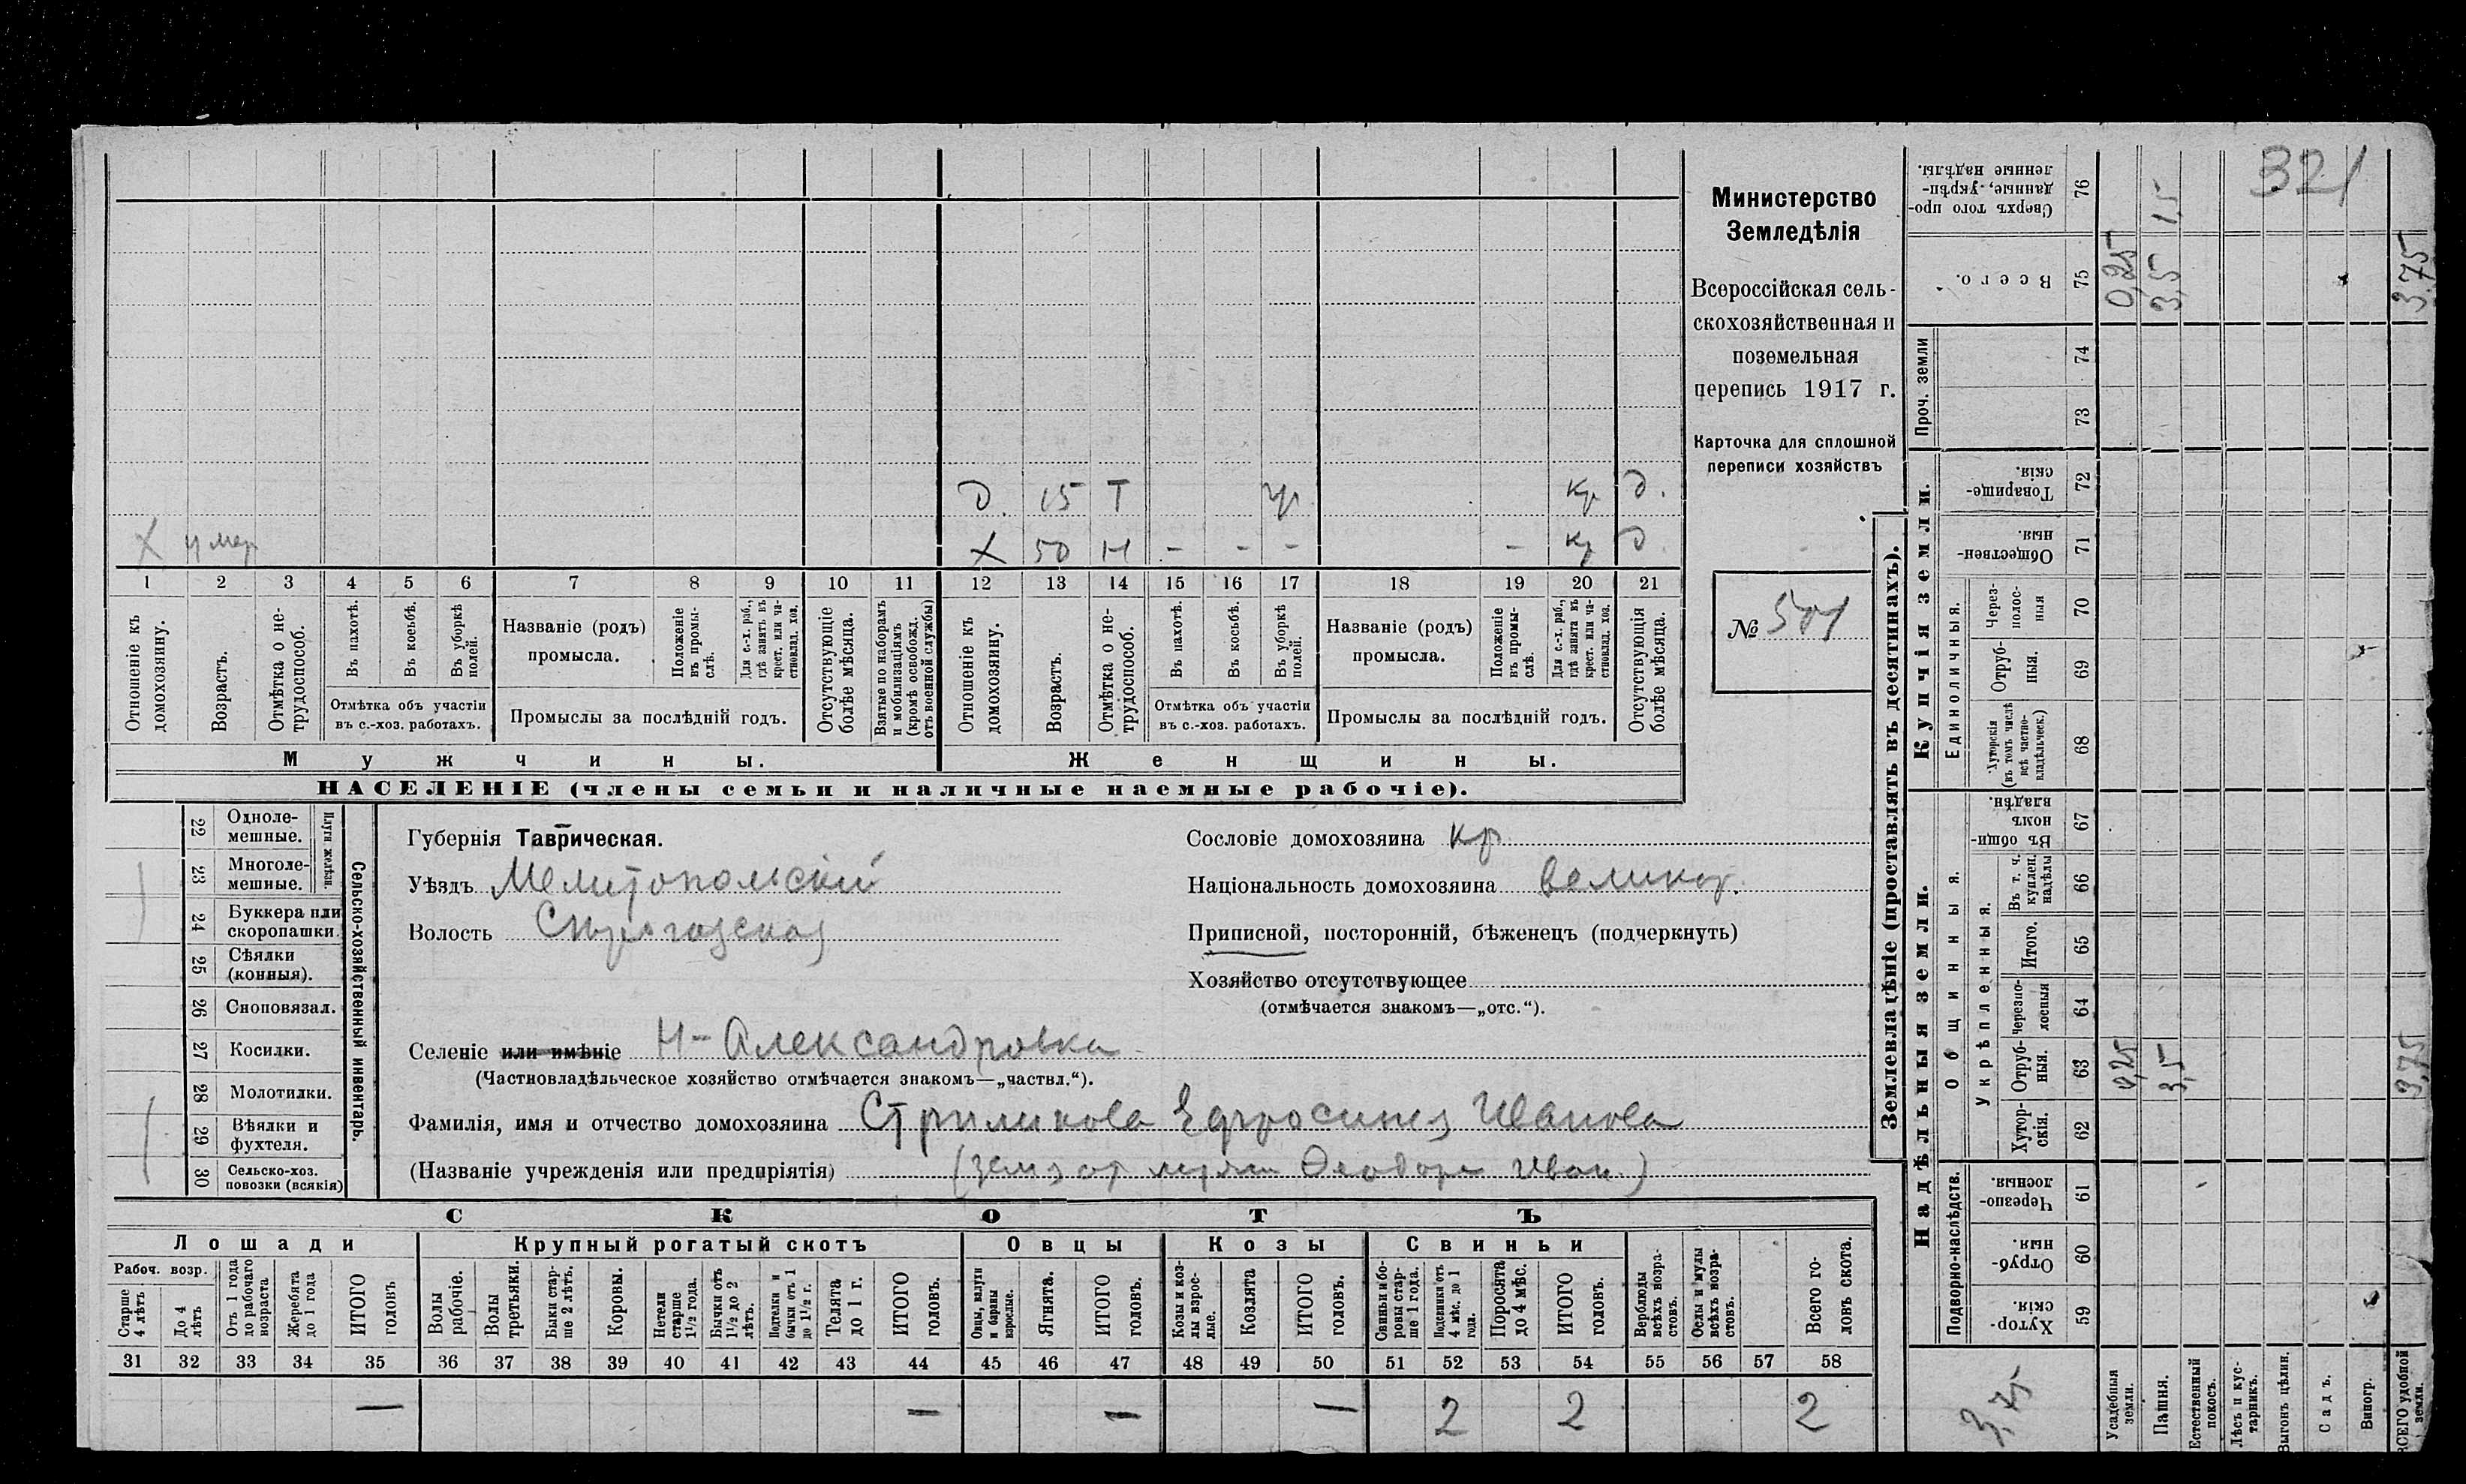 321
Министерство
Земледѣлія
Всероссійская сель-
скохозяйственная и
поземельная
перепись 1917 г.
Карточка для сплошной
переписи хозяйствъ
№ 501
Д. 15 Т кр д.
Х умер Х 50 Н - - - - кр д
1 2 3 4 5 6 7 8 9 10 11 12 13 14 15 16 17 18 19 20 21
Отношеніе къ домохозяину.
Возрастъ.
Отмѣтка о не-трудоспособ.
Въ пахотѣ.
Въ косьбѣ.
Въ уборкѣ полей.
Отмѣтка объ участіи
въ с.-хоз. работахъ.
Названіе (родъ)
промысла.
Положеніе въ промы-слѣ.
Для с.-х. раб., гдѣ занятъ въ крест. или ча-стновлад. хоз.
Промыслы за послѣдній годъ.
Отсутствующіе болѣе мѣсяца.
Взятые по наборамъ и мобилизаціямъ (кромѣ освобожд. отъ военной службы)
Отношеніе къ домохозяину.
Возрастъ.
Отмѣтка о не-трудоспособ.
Въ пахотѣ.
Въ косьбѣ.
Въ уборкѣ полей.
Отмѣтка объ участіи
въ с.-хоз. работахъ.
Названіе (родъ)
промысла.
Положеніе въ промы-слѣ.
Для с.-х. раб., гдѣ занята въ крест. или ча-стновлад. хоз.
Промыслы за послѣдній годъ.
Отсутствующія болѣе мѣсяца.
Мужчины. Женщины.
НАСЕЛЕНІЕ (члены семьи и наличные наемные рабочіе).
Сельско-хозяйственный инвентарь.
Плуги желѣзн.
22 Одноле-мешные.
23 Многоле-мешные.
24 Буккера или скоропашки.
25 Сѣялки (конныя).
26 Сноповязал.
27 Косилки.
28 Молотилки.
29 Вѣялки и фухтеля.
30 Сельско-хоз. повозки (всякія)
Губернія Таврическая.
Уѣздъ Мелитопольскій
Волость
Селеніе или имѣніе Н-Александровка
(Частновладѣльческое хозяйство отмѣчается знакомъ—„частвл.“).
Фамилія, имя и отчество домохозяина Стриликова Ефросиния Иванова
(Названіе учрежденія или предпріятія)
Сословіе домохозяина кр
Національность домохозяина великор.
Приписной, посторонній, бѣженецъ (подчеркнуть)
Хозяйство отсутствующее
(отмѣчается знакомъ—„отс.“).
СКОТЪ
Лошади Крупный рогатый скотъ Овцы Козы Свиньи
Рабоч. возр.
Старше 4 лѣтъ
До 4 лѣтъ
Отъ 1 года до рабочаго возраста
Жеребята до 1 года
ИТОГО головъ
Волы рабочіе.
Волы третьяки.
Быки стар-ше 2 лѣтъ.
Коровы.
Нетели старше 1½ года.
Бычки отъ 1½ до 2 лѣтъ.
Подтелки и бычки отъ 1 до 1½ г.
Телята до 1 г.
ИТОГО головъ.
Овцы, валухи и бараны взрослые.
Ягнята.
ИТОГО головъ.
Козы и коз-лы взрос-лые.
Козлята
ИТОГО головъ.
Свиньи и бо-ровы стар-ше 1 года.
Подсвинки отъ 4 мѣс. до 1 года.
Поросята до 4 мѣс.
ИТОГО головъ.
Верблюды всѣхъ возра-стовъ.
Ослы и мулы всѣхъ возра-стовъ.
Всего го-ловъ скота.
31 32 33 34 35 36 37 38 39 40 41 42 43 44 45 46 47 48 49 50 51 52 53 54 55 56 57 58
— — — — 2 2 2
Землевладѣніе (проставлять въ десятинахъ).
Купчія земли.
Надѣльныя земли.
Сверхъ того про-данные, укрѣп-ленные надѣлы. 76 1,5
Всего. 75 0,25 3,5 3,75
Проч. земли 74
73
Товарище-скія. 72
Обществен-ныя. 71
Единоличныя.
Через-полос-ныя 70
Отруб-ныя. 69
Хуторскія (въ томъ числѣ всѣ частно-владѣльческ.) 68
Въ общин-номъ владѣн. 67
Общинныя.
Укрѣпленныя.
Въ т. ч. куплен. надѣлы 66
Итого. 65
Черезпо-лосныя 64
Отруб-ныя. 63 0,25 3,5 3,75
Хутор-скія. 62
Подворно-наслѣдств.
Черезпо-лосныя. 61
Отруб-ныя. 60
Хутор-скія. 59
3,75
Усадебныя земли.
Пашня.
Естественный покосъ.
Лѣсъ и кус-тарникъ.
Выгонъ цѣлин.
Садъ.
Виногр.
ВСЕГО удобной земли.